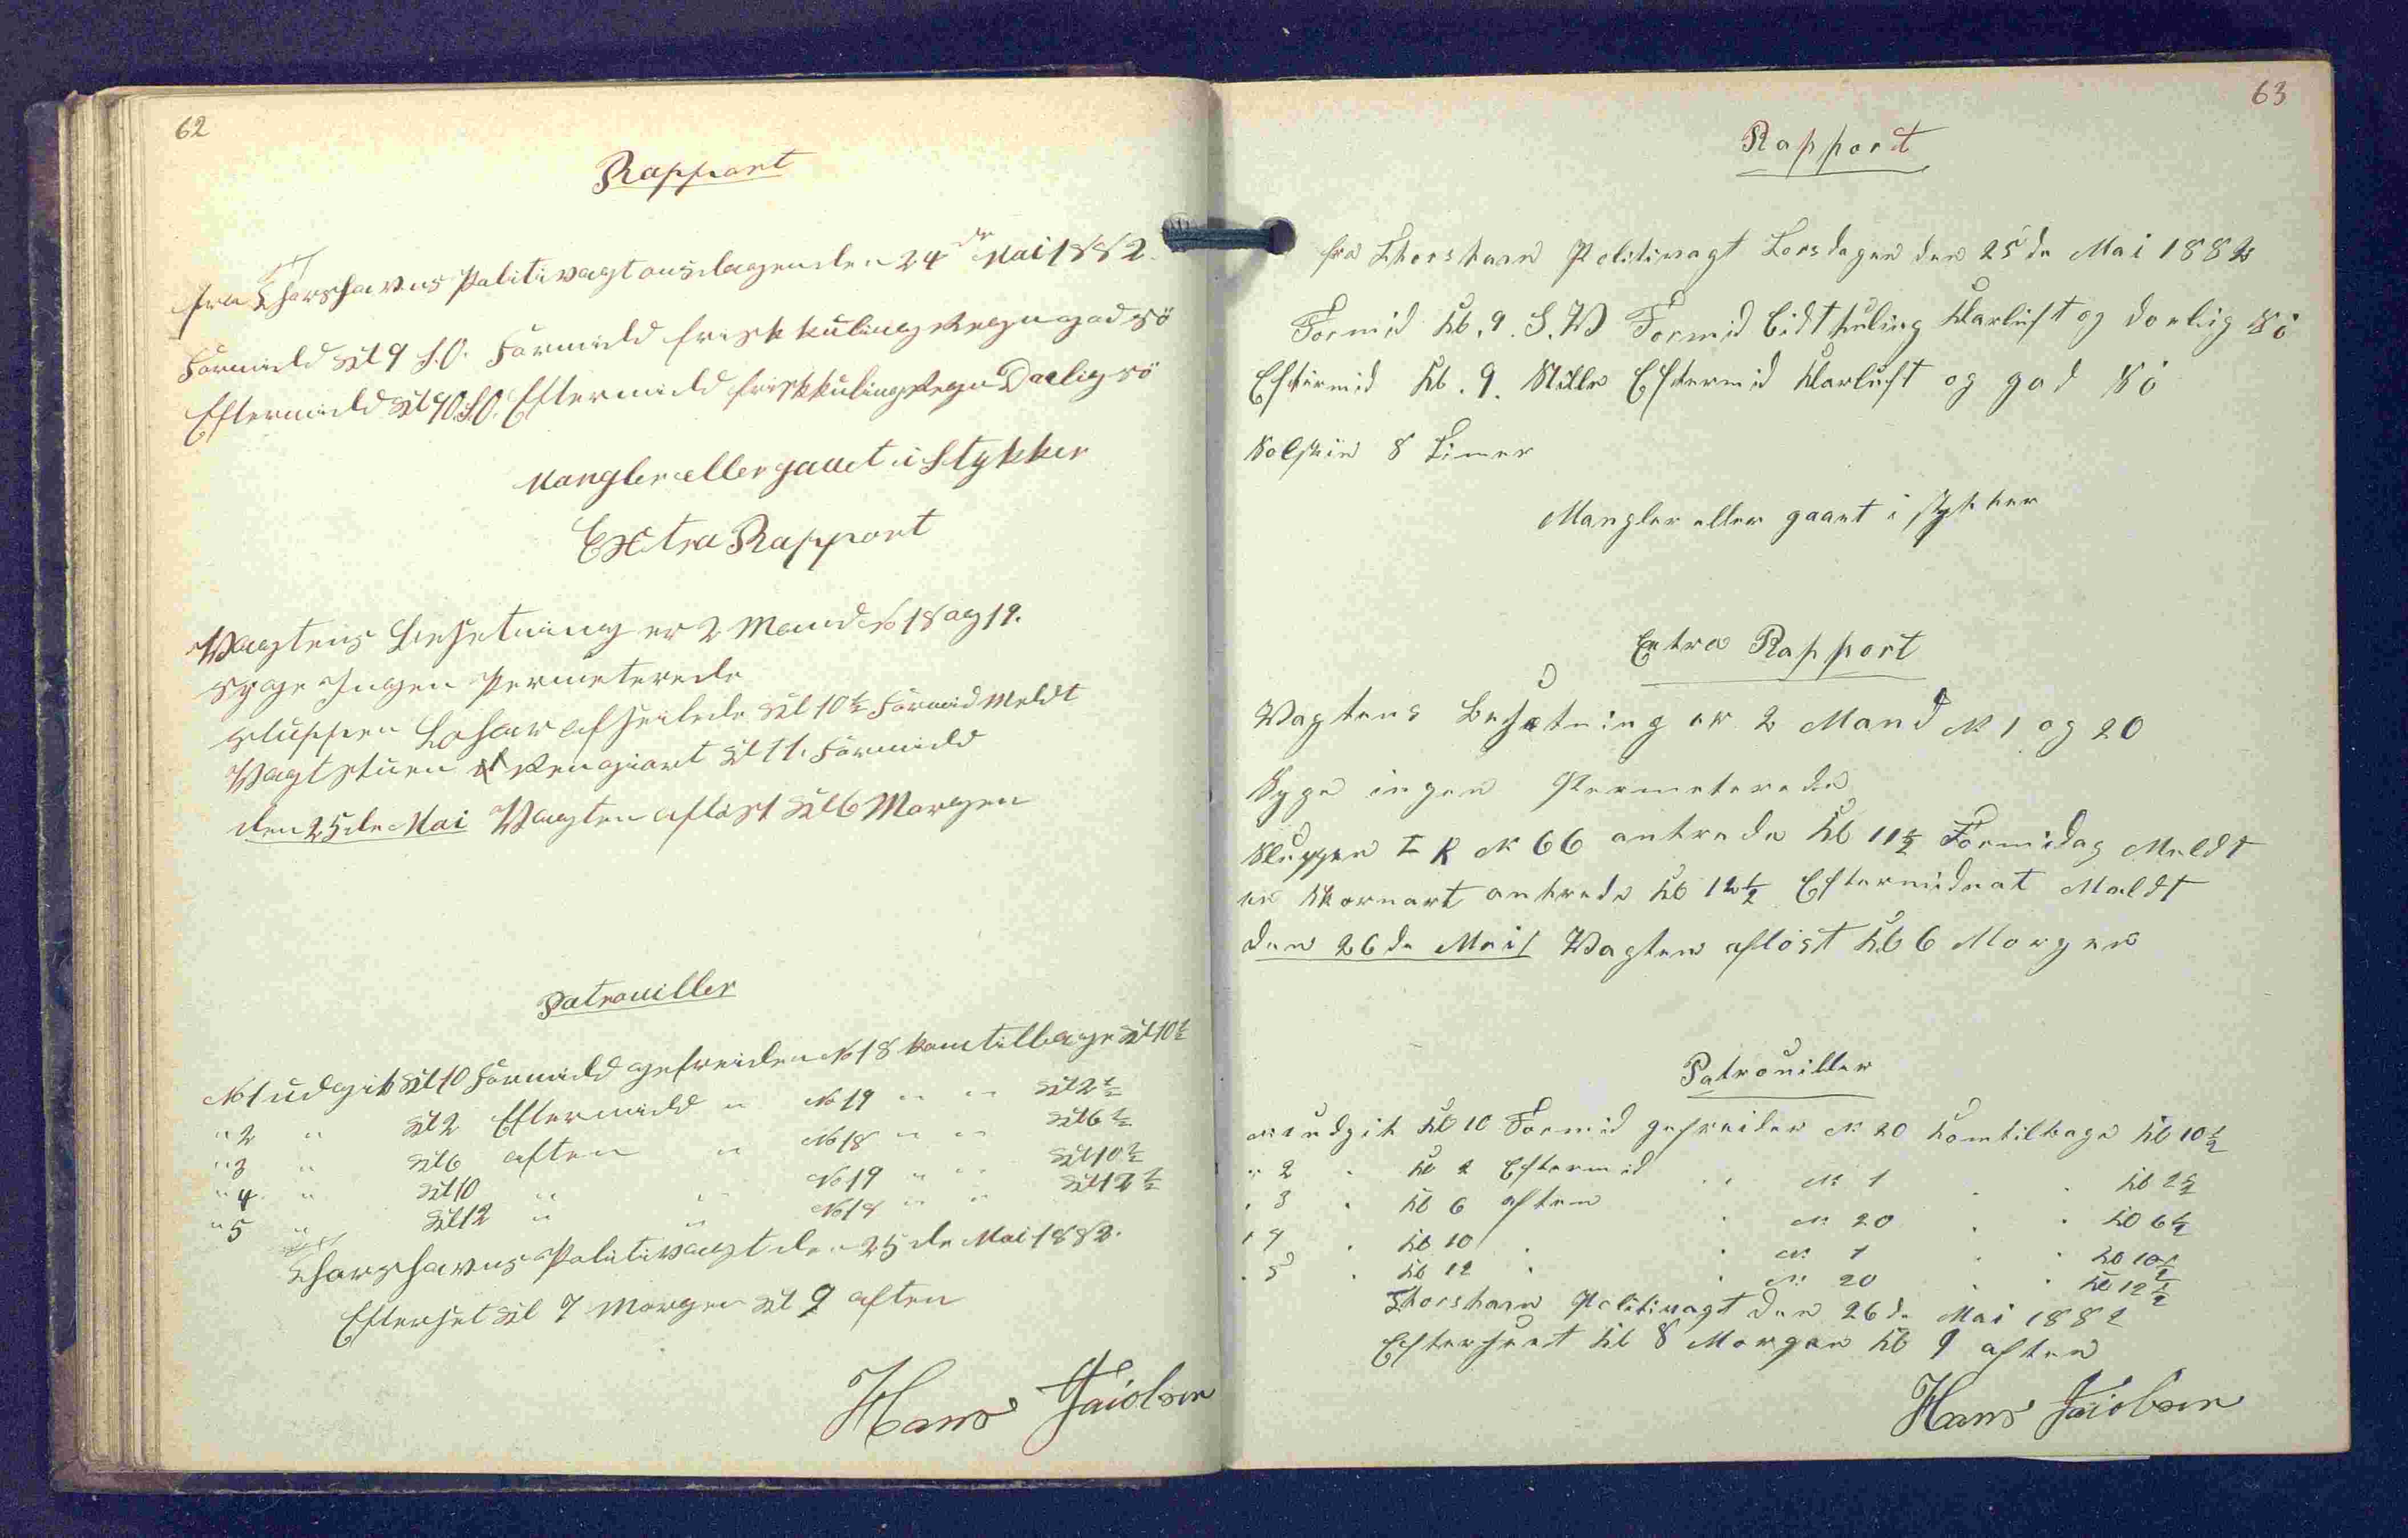 62
Rapport
fra Thorshavns Politivagt onsdagen den 24de Mai 1882.
Formidd Kl 9 S.O. Formidd frisk kuling Regn god sö
Eftermidd Kl 9 O.S.O. Eftermidd frisk kuling Regn Daelig sö
Mangler eller gaaet i Stykker
Extra Rapport
Vagtens Besetning er 2 Mand No 18 og 19.
syge Ingen Permeterede
sluppen afseilede Kl 10½ Formid Meldt
Vagtstuen Rengiort Kl 11. Formidd
den 25de Mai Vagten aflöst Kl 6 Morgen
Patrouiller
No 1 udgik Kl 10 Formidd gefreiden No 18 kom tilbage Kl 10½
" 2 " Kl 2 Eftermidd " No 19 " " Kl 2½
" 3 " Kl 6 aften " No 18 " " Kl 6½
" 4 " Kl 10 " " No 19 " " Kl 10½
" 5 " Kl 12 " " No 18 " " Kl 12½
Thorshavns Politivagt den 25de Mai 1882.
Efterset Kl 7 Morgen Kl 9 aften
Hans Jacobsen
63
Rapport
fra Thorshavn Politivagt Torsdagen den 25de Mai 1882
Formid Kl. 9. S.W Formid lidt kuling klarluft og dorlig sö
Eftermid Kl. 9. Stille Eftermid klarluft og god sö
Solskin 8 Timer
Mangler eller gaaet i stykker
Extra Rapport
Vagtens Besætning er 2 Mand N 1 og 20
Syge ingen Permeterede
Sluppen T R N 66 ankrede Kl 11½ Formidag Meldt
en ankrede Kl 12½ Eftermidnat Meldt
den 26de Mai Vagten aflöst Kl 6 Morgen
Patrouiller
N: 1 udgik Kl 10 Formid gefreider N 20 komtilbage Kl 10½
" 2 " Kl 2 Eftermid " " N 1 " " Kl 2½
" 3 " Kl 6 aften " N 20 " " Kl 6½
" 4 " Kl 10 " " N 1 " " Kl 10½
" 5 " Kl 12 " " N 20 " " Kl 12½
Thorshavn Politivagt den 26de Mai 1882
Efterseet Kl 8 Morgen Kl 9 aften
Hans Jacobsen